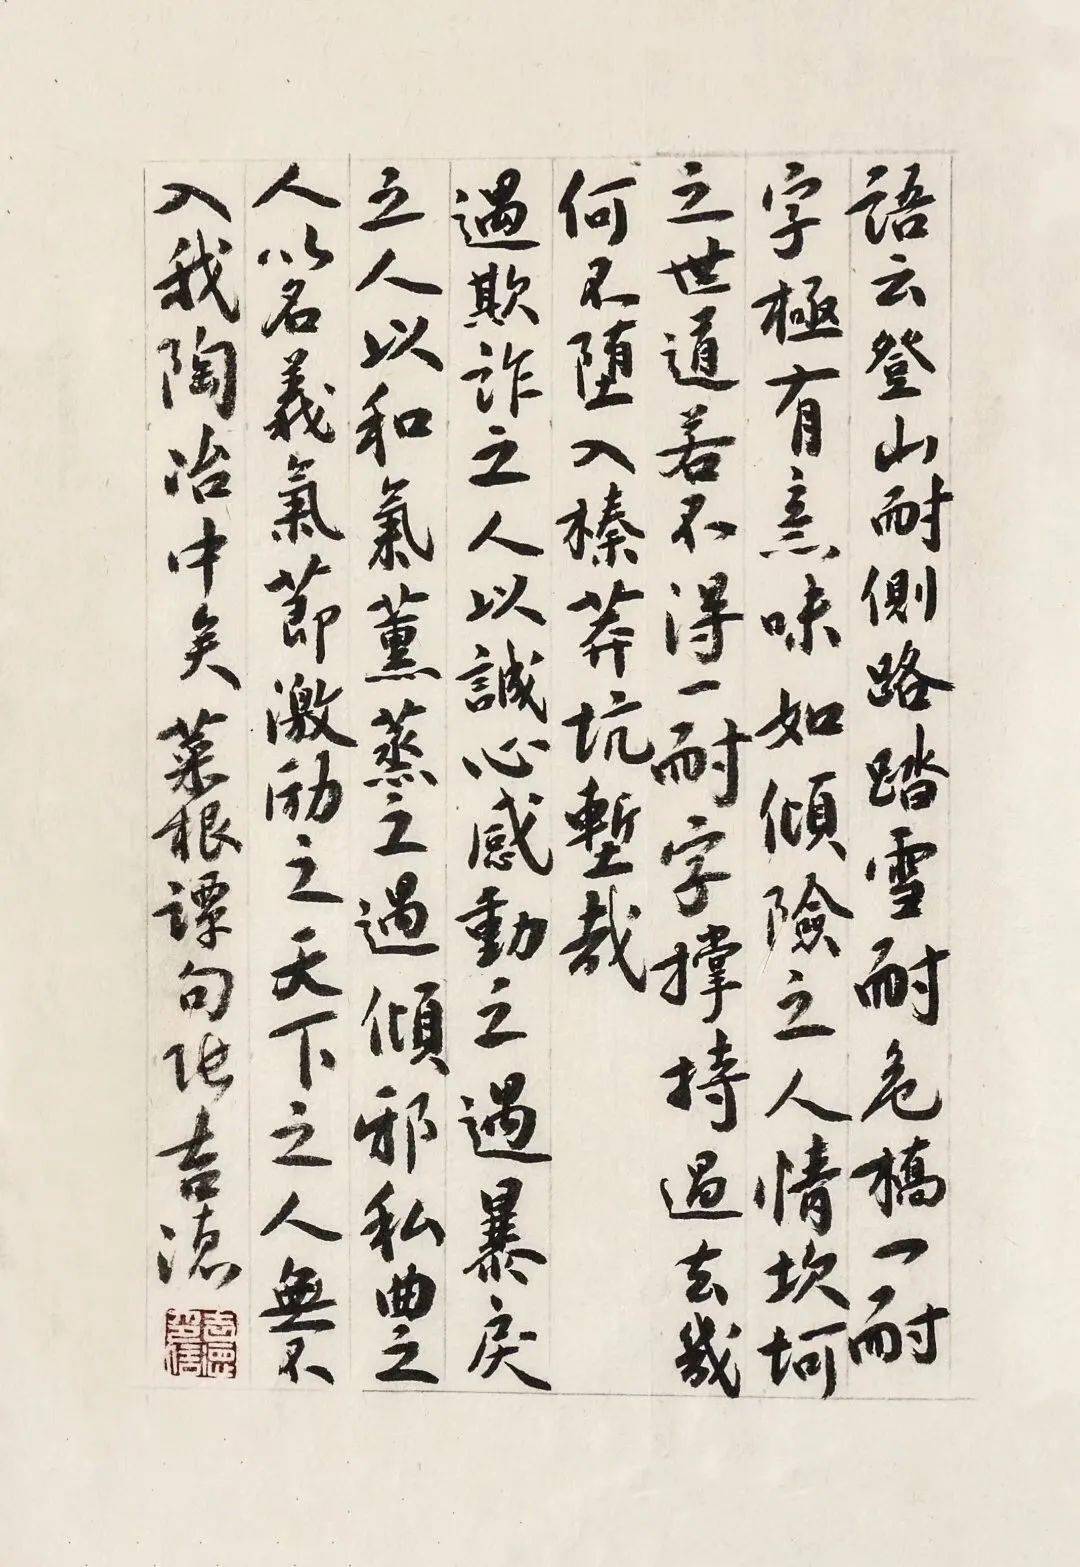 語云登山耐側路踏雪耐危橋一耐
字極有意味如傾險之人情坎坷
之世道若不得一耐字撑持過去幾
何不堕入榛莽坑塹哉
遇欺詐之人以誠心感動之遇暴戾
之人以和氣薰蒸之遇傾邪私曲之
人以名義氣節激励之天下之人無不
入我陶冶中矣菜根譚句張吉德